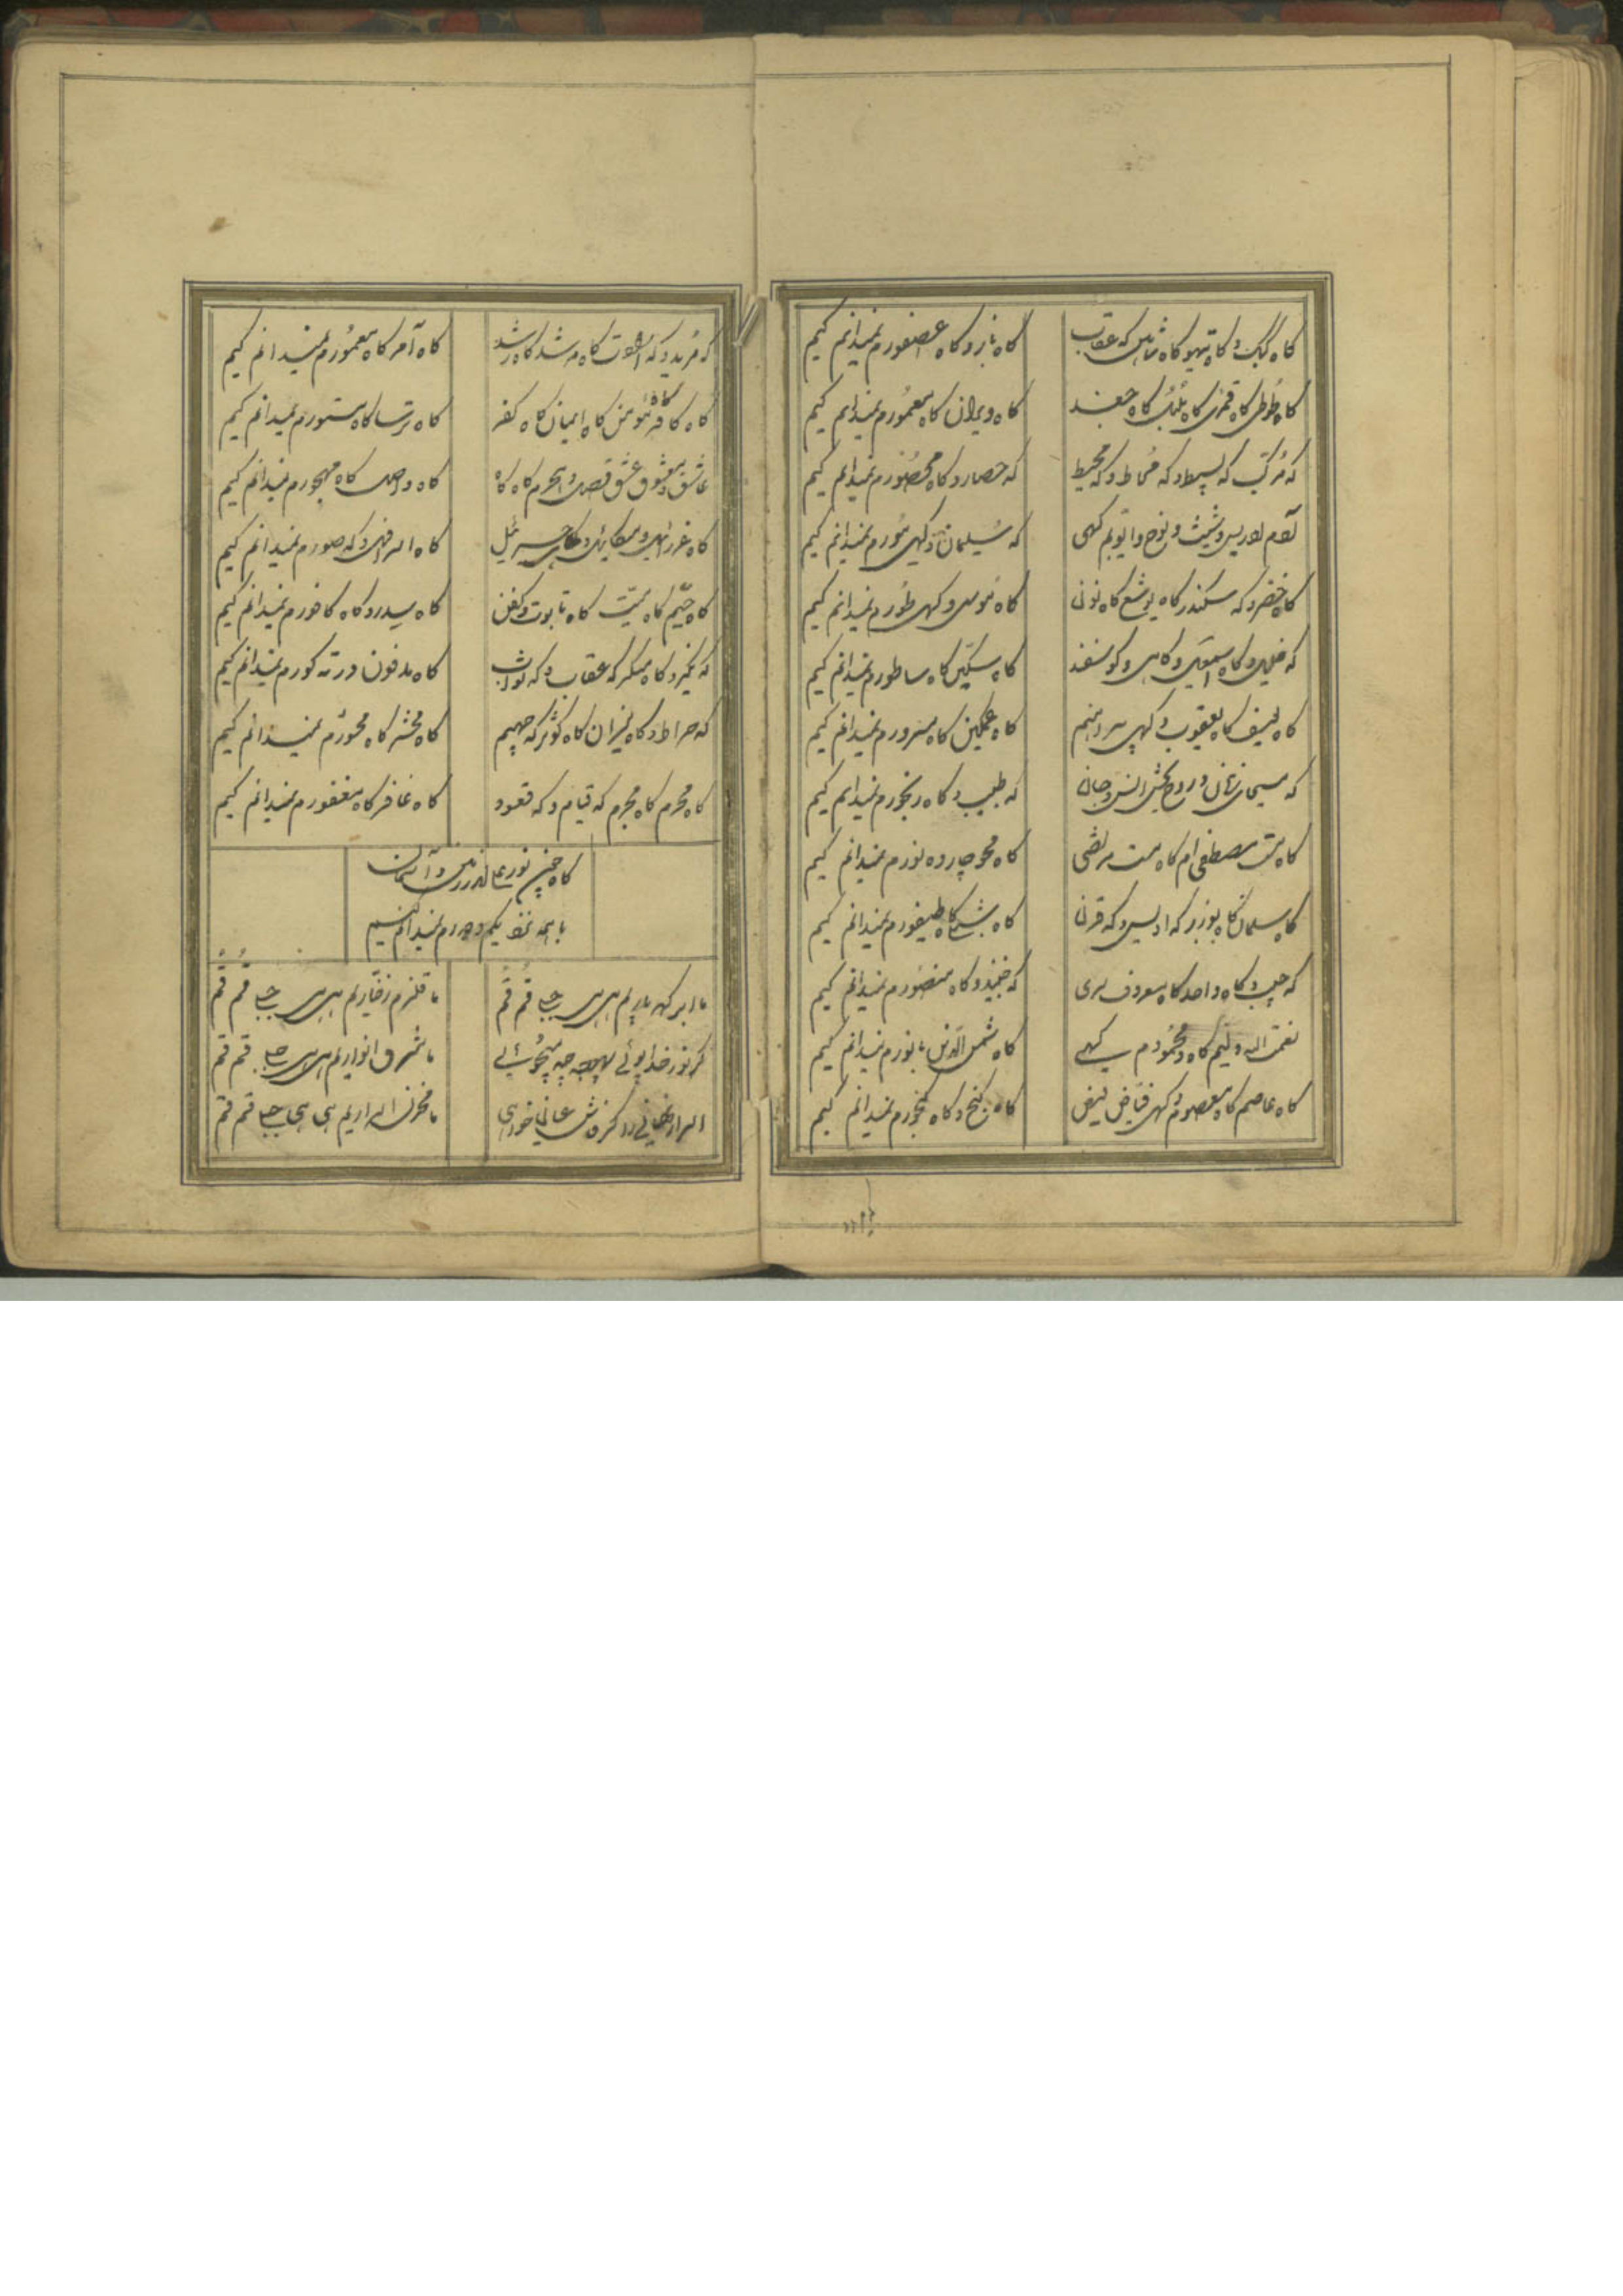 گاه کبک و گاه تیهو گاه شاهین گه عقاب
گاه باز و گاه عصفورم نمیدانم کیم
گاه طوطی گاه قمری گاه بلبل گاه جغد
گاه ویران گاه معمورم نمیدانم کیم
گه مرکب گه بسیط و گه محاط و گه محیط
گه حصار و گاه محصورم نمیدانم کیم
آدم ادریس و شیث و نوح و ایوبم گهی
گه سلیمان و گهی مورم نمیدانم کیم
گاه خضر و گه سکندر گاه یوشع گاه نون
گاه موسی و گهی طورم نمیدانم کیم
گه خلیل و گاه اسمعیل و گاهی گوسفند
گاه سکین گاه ساطورم نمیدانم کیم
گاه یوسف گاه یعقوب و گهی پیراهنم
گاه غمگین گاه مسرورم نمیدانم کیم
گه مسیحای زمان و روح بخش انس و جان
گه طبیب و گاه رنجورم نمیدانم کیم
گاه مست مصطفی ام گاه مست مرتضی
گاه محو چارده نورم نمیدانم کیم
گاه سلمان گاه بوذر گه اویس و گه قرن
گاه شبلی گاه طیفورم نمیدانم کیم
گه حبیب و گاه واحد گاه معروف سری
گه جنید و گاه منصورم نمیدانم کیم
نعمت الله ولیم گاه و محمودم گهی
گاه شمس الدین نورم نمیدانم کیم
گاه عاصم گاه معصوم و گهی فیاض فیض
گاه گنج و گاه گنجورم نمیدانم کیم
گه مرید و گه گاه مرشد گاه رشد
گاه آمر گاه معمورم نمیدانم کیم
گاه کافر گاه مومن گاه ایمان گاه کفر
گاه ترسا گاه مستورم نمیدانم کیم
عاشق و معشوق عشق وصل و هجرم گاه گاه
گاه واصل گاه مهجورم نمیدانم کیم
گاه عزرائیل و میکائیل و گاهی جبرئیل
گاه اسرافیل و گه صورم نمیدانم کیم
گاه حیم گاه میت گاه تابوت و کفن
گاه سدر و گاه کافورم نمیدانم کیم
گه نکیر و گاه منکر گه عقاب و گه ثواب
گاه مدفون در ته گورم نمیدانم کیم
گه صراط و گاه میزان گاه کوثر گه جهیم
گاه محشر گاه محشورم نمیدانم کیم
گاه محرم گاه مجرم گه قیام و گه قعود
گاه غافر گاه مغفورم نمیدانم کیم
گاه چون نور علی اندر زمین و آسمان
با همه نزدیکم و دورم نمیدانم کیم
ما ابر گهر باریم هی هی جبلی قم قم
ما قلزم زخاریم هی هی جبلی قم قم
گر نور خدا جوئی بیهوده چه میپوئی
ما مشرق انواریم هی هی جبلی قم قم
اسرار نهانی را گر فاش عیان خواهی
ما مخزن اسراریم هی هی جبلی قم قم